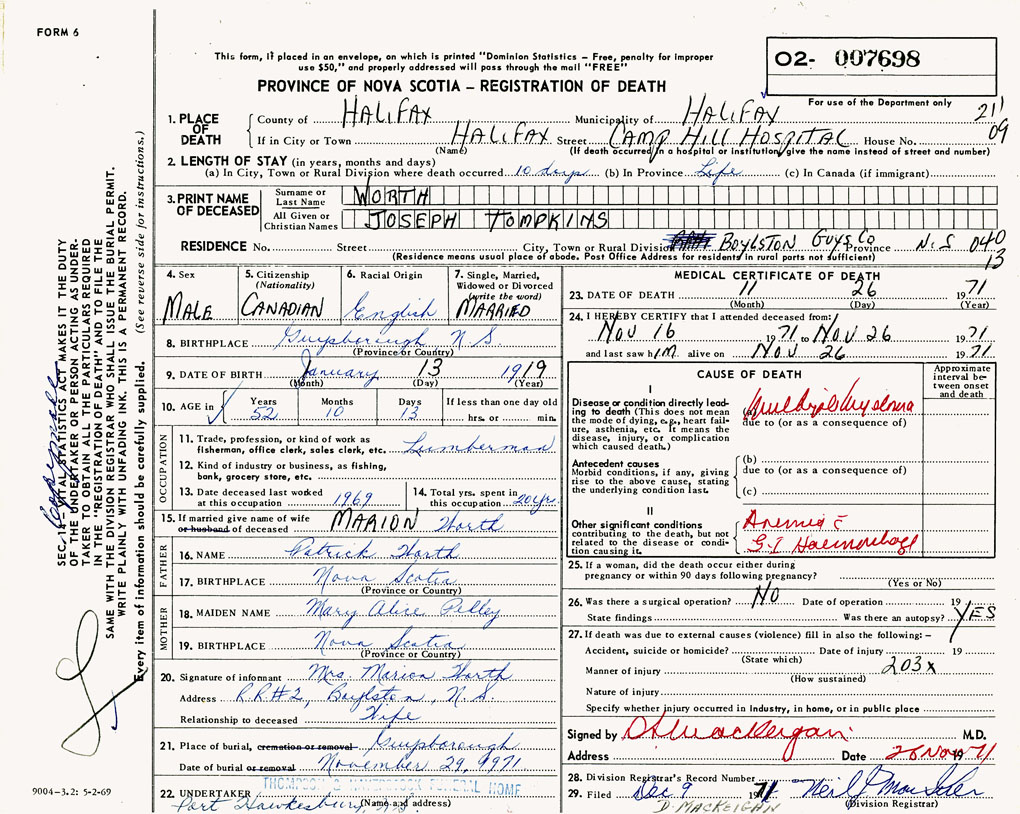 FORM 6
This form, if placed in an envelope, on which is printed "Dominion Statistics – Free, penalty for improper
use $50," and properly addressed will pass through the mail "FREE"
02- 007698
PROVINCE OF NOVA SCOTIA – REGISTRATION OF DEATH
For use of the Department only
1. PLACE OF DEATH
County of HALIFAX Municipality of HALIFAX 21
If in City or Town HALIFAX Street CAMP HILL HOSPITAL House No. 09
(Name) (If death occurred in a hospital or institution, give the name instead of street and number)
2. LENGTH OF STAY (in years, months and days)
(a) In City, Town or Rural Division where death occurred 10 days (b) In Province Life (c) In Canada (if immigrant)
3. PRINT NAME OF DECEASED
Surname or Last Name WORTH
All Given or Christian Names JOSEPH TOMPKINS
RESIDENCE No. Street City, Town or Rural Division BOYLSTON GUYS CO Province N.S 040
(Residence means usual place of abode. Post Office Address for residents in rural parts not sufficient) 13
4. Sex MALE
5. Citizenship (Nationality) CANADIAN
6. Racial Origin English
7. Single, Married, Widowed or Divorced (write the word) MARRIED
8. BIRTHPLACE Guysborough N.S
(Province or Country)
9. DATE OF BIRTH January 13 1919
(Month) (Day) (Year)
10. AGE in Years 52 Months 10 Days 13 If less than one day old hrs. or min.
OCCUPATION
11. Trade, profession, or kind of work as
fisherman, office clerk, sales clerk, etc. Lumberman
12. Kind of industry or business, as fishing,
bank, grocery store, etc.
13. Date deceased last worked
at this occupation 1969
14. Total yrs. spent in
this occupation 20 yrs.
15. If married give name of wife
or husband of deceased MARION Worth
FATHER
16. NAME Patrick Worth
17. BIRTHPLACE Nova Scotia
(Province or Country)
MOTHER
18. MAIDEN NAME Mary Alice Pelley
19. BIRTHPLACE Nova Scotia
(Province or Country)
20. Signature of informant Mrs. Marion Worth
Address R.R.#2, Boylston, N.S.
Relationship to deceased Wife
21. Place of burial, cremation or removal Guysborough
Date of burial or removal November 29, 1971
22. UNDERTAKER FUNERAL HOME
Port Hawkesbury, N.S.
(Name and address)
MEDICAL CERTIFICATE OF DEATH
23. DATE OF DEATH 11 26 1971
(Month) (Day) (Year)
24. I HEREBY CERTIFY that I attended deceased from:
NOV 16 1971 to NOV 26 1971
and last saw him alive on NOV 26 1971
CAUSE OF DEATH
Approximate interval between onset and death
I
Disease or condition directly leading to death (This does not mean the mode of dying, e.g., heart failure, asthenia, etc. It means the disease, injury, or complication which caused death.)
(a) Multiple Myeloma
due to (or as a consequence of)
Antecedent causes
Morbid conditions, if any, giving rise to the above cause, stating the underlying condition last.
(b)
due to (or as a consequence of)
(c)
II
Other significant conditions
contributing to the death, but not related to the disease or condition causing it.
Anemia c̄
G.I Haemorrhage
25. If a woman, did the death occur either during
pregnancy or within 90 days following pregnancy?
(Yes or No)
26. Was there a surgical operation? NO Date of operation 19
State findings Was there an autopsy? YES
27. If death was due to external causes (violence) fill in also the following: –
Accident, suicide or homicide? Date of injury 19
(State which)
Manner of injury 203x
(How sustained)
Nature of injury
Specify whether injury occurred in industry, in home, or in public place
Signed by M.D.
Address Date 26 Nov 1971
28. Division Registrar's Record Number
29. Filed Dec 9 1971
D. MACKEIGAN (Division Registrar)
SEC. 14 – VITAL STATISTICS ACT MAKES IT THE DUTY
OF THE UNDERTAKER OR PERSON ACTING AS UNDER-
TAKER TO OBTAIN ALL THE PARTICULARS REQUIRED
IN THE "REGISTRATION OF DEATH" AND TO FILE THE
SAME WITH THE DIVISION REGISTRAR WHO SHALL ISSUE THE BURIAL PERMIT.
WRITE PLAINLY WITH UNFADING INK. THIS IS A PERMANENT RECORD.
Every item of information should be carefully supplied. (See reverse side for instructions.)
9004-3.2: 5-2-69